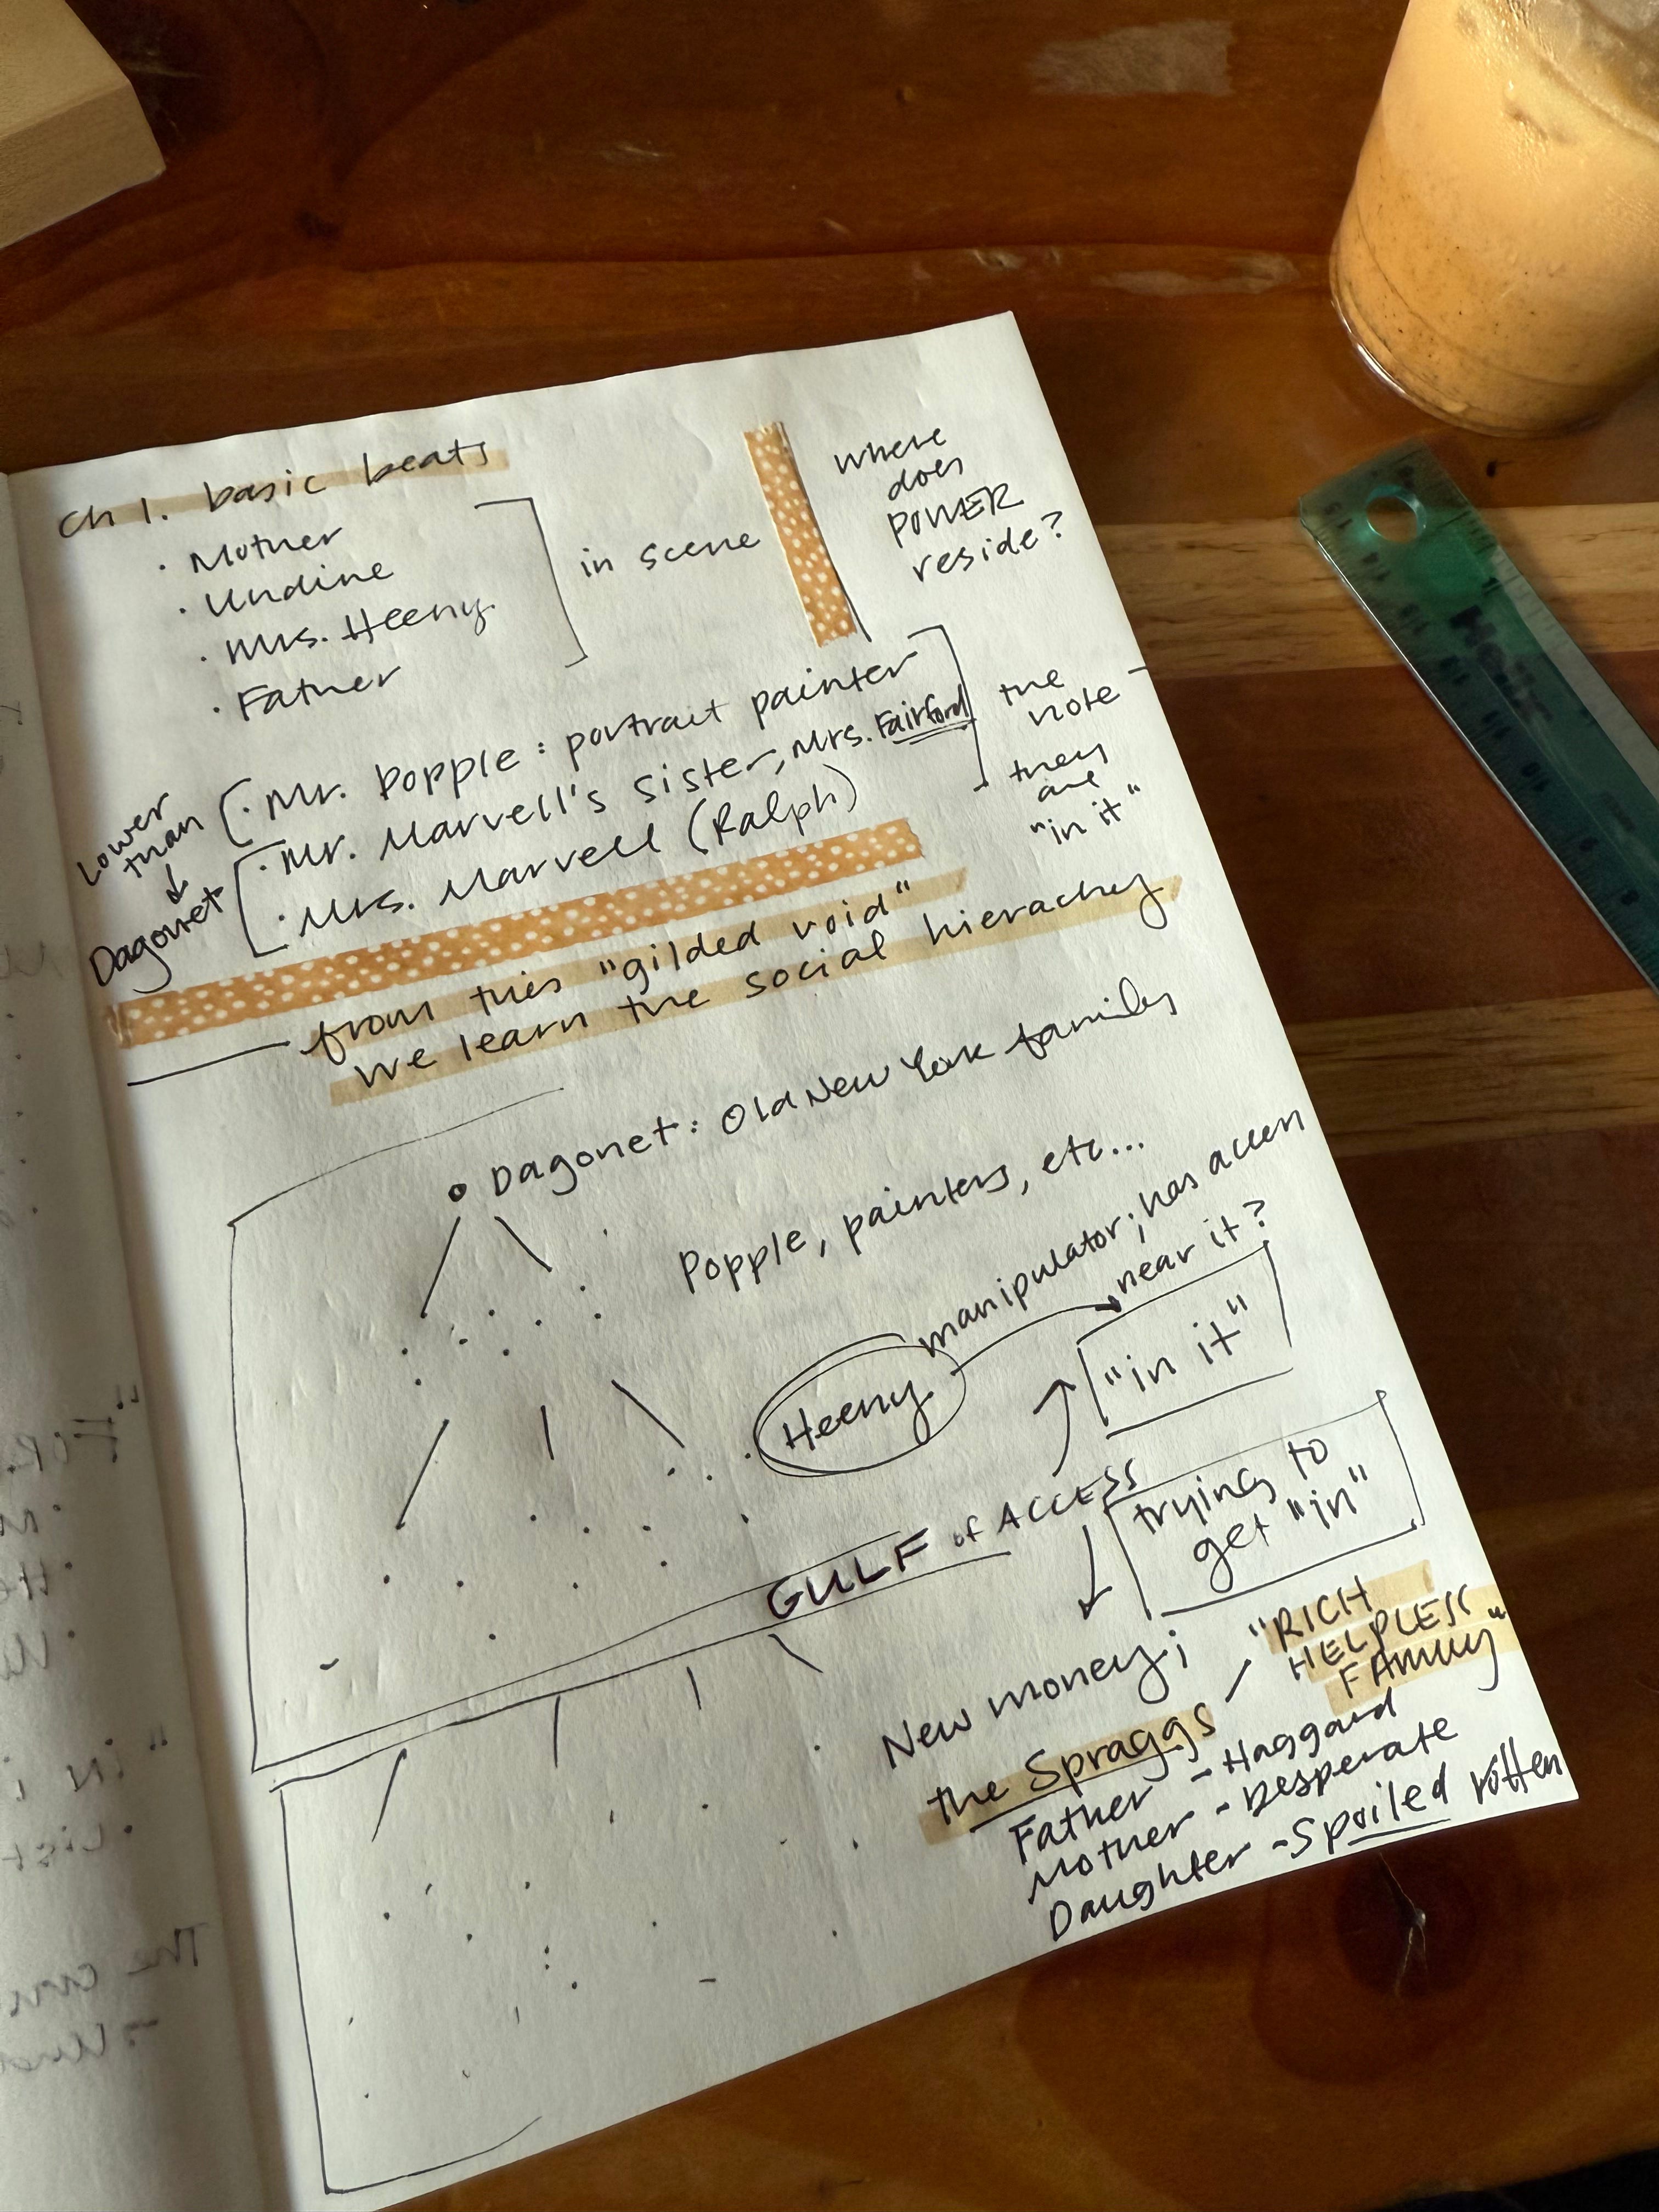 Ch 1. basic beats
· Mother
· Undine
· Mrs. Heeny
· Father
in scene
where
does
POWER
reside?
· Mr. Popple: portrait painter
· Mr. Marvell's sister, Mrs. Fairford
· Mrs. Marvell (Ralph)
the
note -
they
are
"in it"
Lower
than
Dagonet
from this "gilded void"
we learn the social hierachey
Dagonet: Old New York family
Popple, painters, etc...
manipulator; has access
near it?
Heeny
"in it"
GULF of ACCESS
trying to
get "in"
New money;
the Spraggs - "RICH
HELPLESS
FAMILY"
Father - Haggard
Mother - Desperate
Daughter - Spoiled rotten